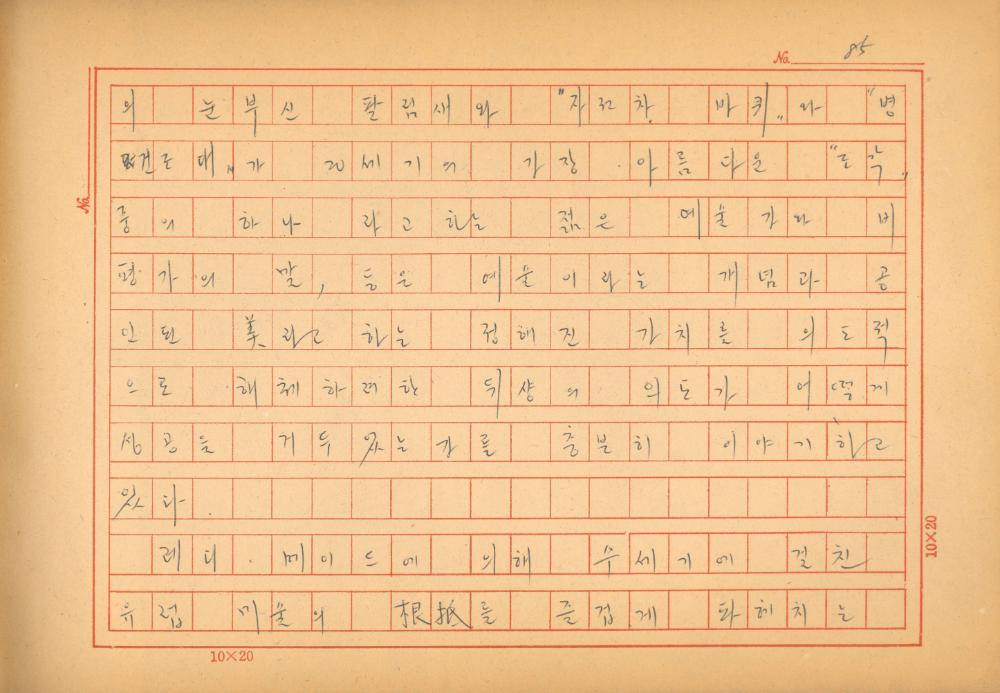 No. 85
의 눈부신 팔림새와 "자전차 바퀴"와 "병
건조대"가 20세기의 가장 아름다운 "조각"
중의 하나라고 하는 젊은 예술가와 비
평가의 말, 등은 예술이라는 개념과 공
인된 美라고 하는 정해진 가치를 의도적
으로 해체하려한 뒤샹의 의도가 어떻게
성공을 거두었는가를 충분히 이야기하고
있다.
레디·메이드에 의해 수세기에 걸친
유럽 미술의 根抵를 즐겁게 파헤치는
No.
10×20
10×20